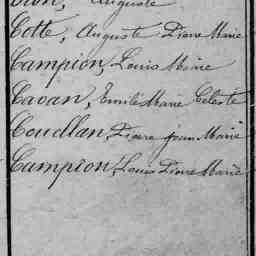 Auguste
Cotte, Auguste Pierre Marie
Campion, Louis Marie
Cavan, Emile Marie Celeste
Coudllan, Pierre Jean Marie
Campion, Louis Pierre Marie